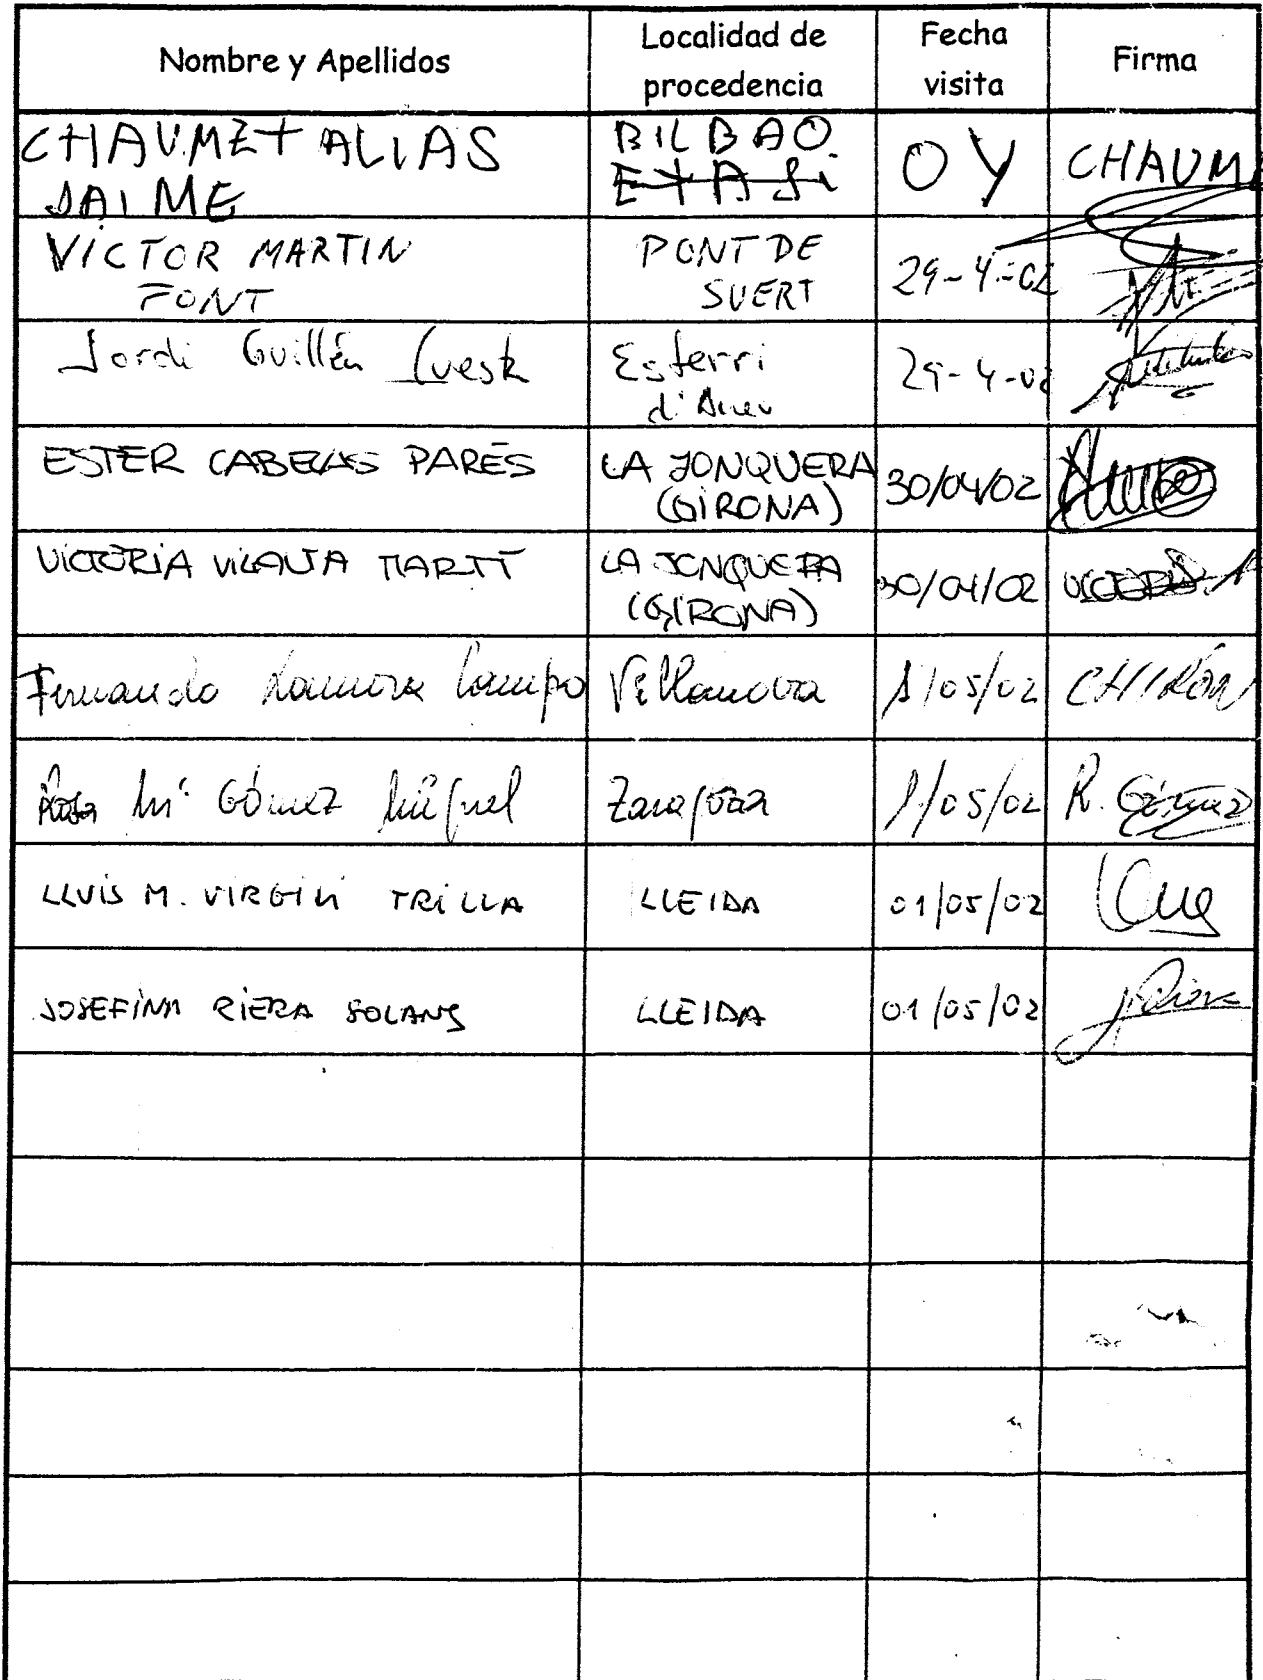 Nombre y Apellidos
Localidad de
procedencia
Fecha
visita
Firma
CHAUMET ALIAS
JAIME
BILBAO.
ETA SI
OY
CHAUM
VICTOR MARTIN
FONT
PONT DE
SUERT
29-4-02
Jordi Guillén
Esterri
d'Aneu
29-4-02
ESTER CABELLAS PARÉS
LA JONQUERA
(GIRONA)
30/04/02
VICTÒRIA VILALTA MARTÍ
LA JONQUERA
(GIRONA)
30/04/02
Fernando Lamora Campo
Villanova
1/05/02
CHIRÓN
Rosa Mª Gómez Miguel
Zaragoza
1/05/02
R. Gómez
LLUÍS M. VIRGILI TRILLA
LLEIDA
01/05/02
JOSEFINA RIERA SOLANS
LLEIDA
01/05/02